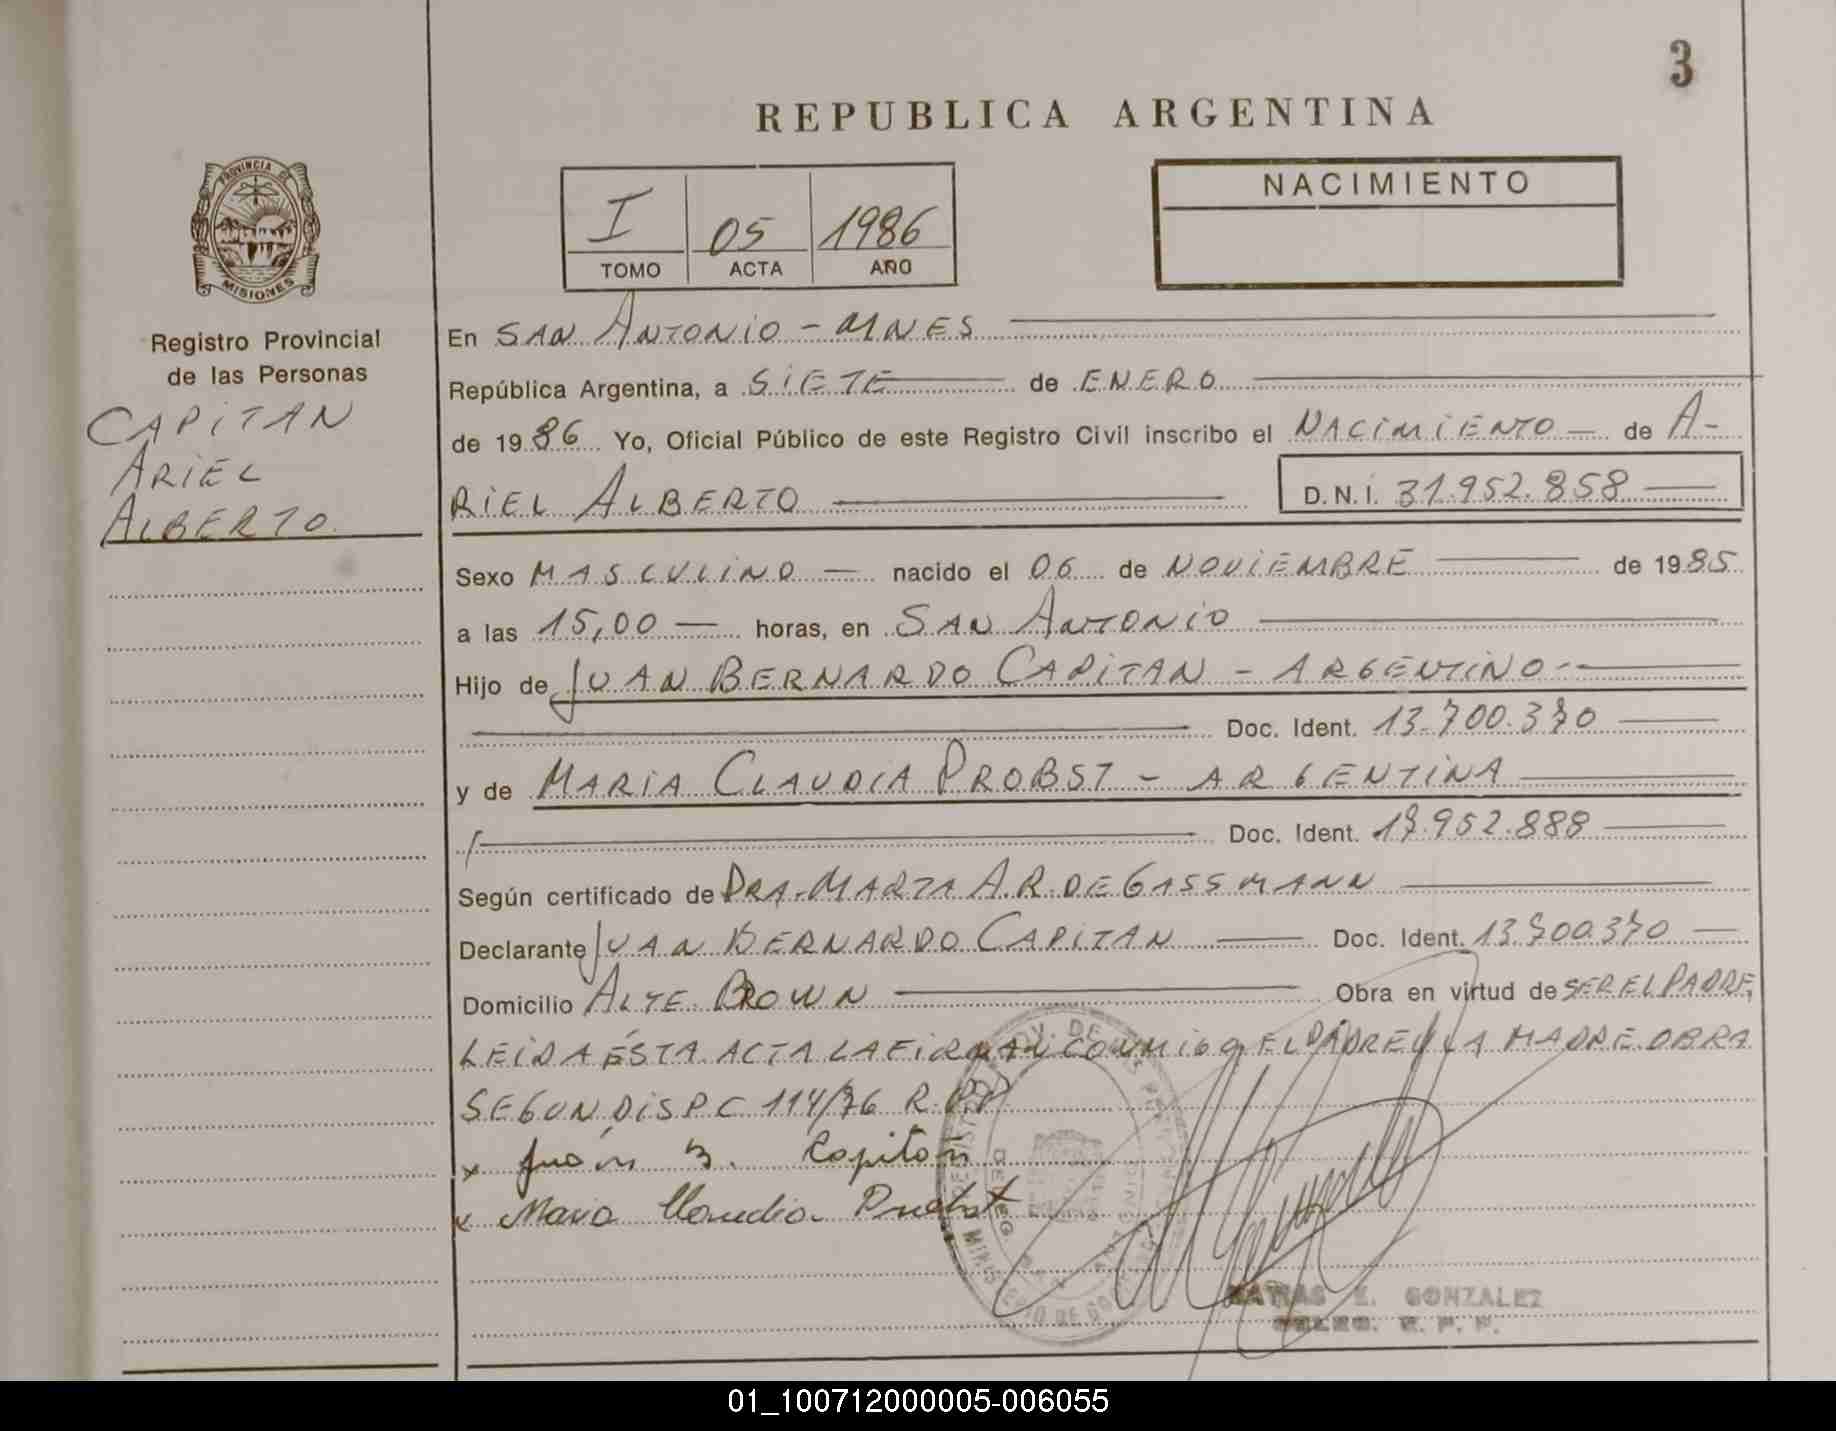 3
REPUBLICA ARGENTINA
PROVINCIA DE
MISIONES
Registro Provincial
de las Personas
CAPITAN
ARIEL
ALBERTO
I 05 1986
TOMO ACTA AÑO
NACIMIENTO
En SAN ANTONIO - MNES
República Argentina, a SIETE de ENERO
de 1986 Yo, Oficial Público de este Registro Civil inscribo el NACIMIENTO de A-
RIEL ALBERTO D.N.I. 31.952.858
Sexo MASCULINO nacido el 06 de NOVIEMBRE de 1985
a las 15,00 horas, en SAN ANTONIO
Hijo de JUAN BERNARDO CAPITAN - ARGENTINO-
Doc. Ident. 13.700.370
y de MARIA CLAUDIA PROBST - ARGENTINA
Doc. Ident.
Según certificado de DRA. MARTA A.R. DE GASSMANN
Declarante JUAN BERNARDO CAPITAN Doc. Ident. 13.700.370
Domicilio ALTE. BROWN Obra en virtud de SER EL PADRE,
LEIDA ÉSTA ACTA LA FIRMAN CONMIGO EL PADRE Y LA MADRE OBRA
SEGUN DISP C 114/76 R.P.P
x Juán B. Capitán
x Maria Claudia Probst
MATIAS E. GONZALEZ
DELEG. R. P. P.
01_100712000005-006055